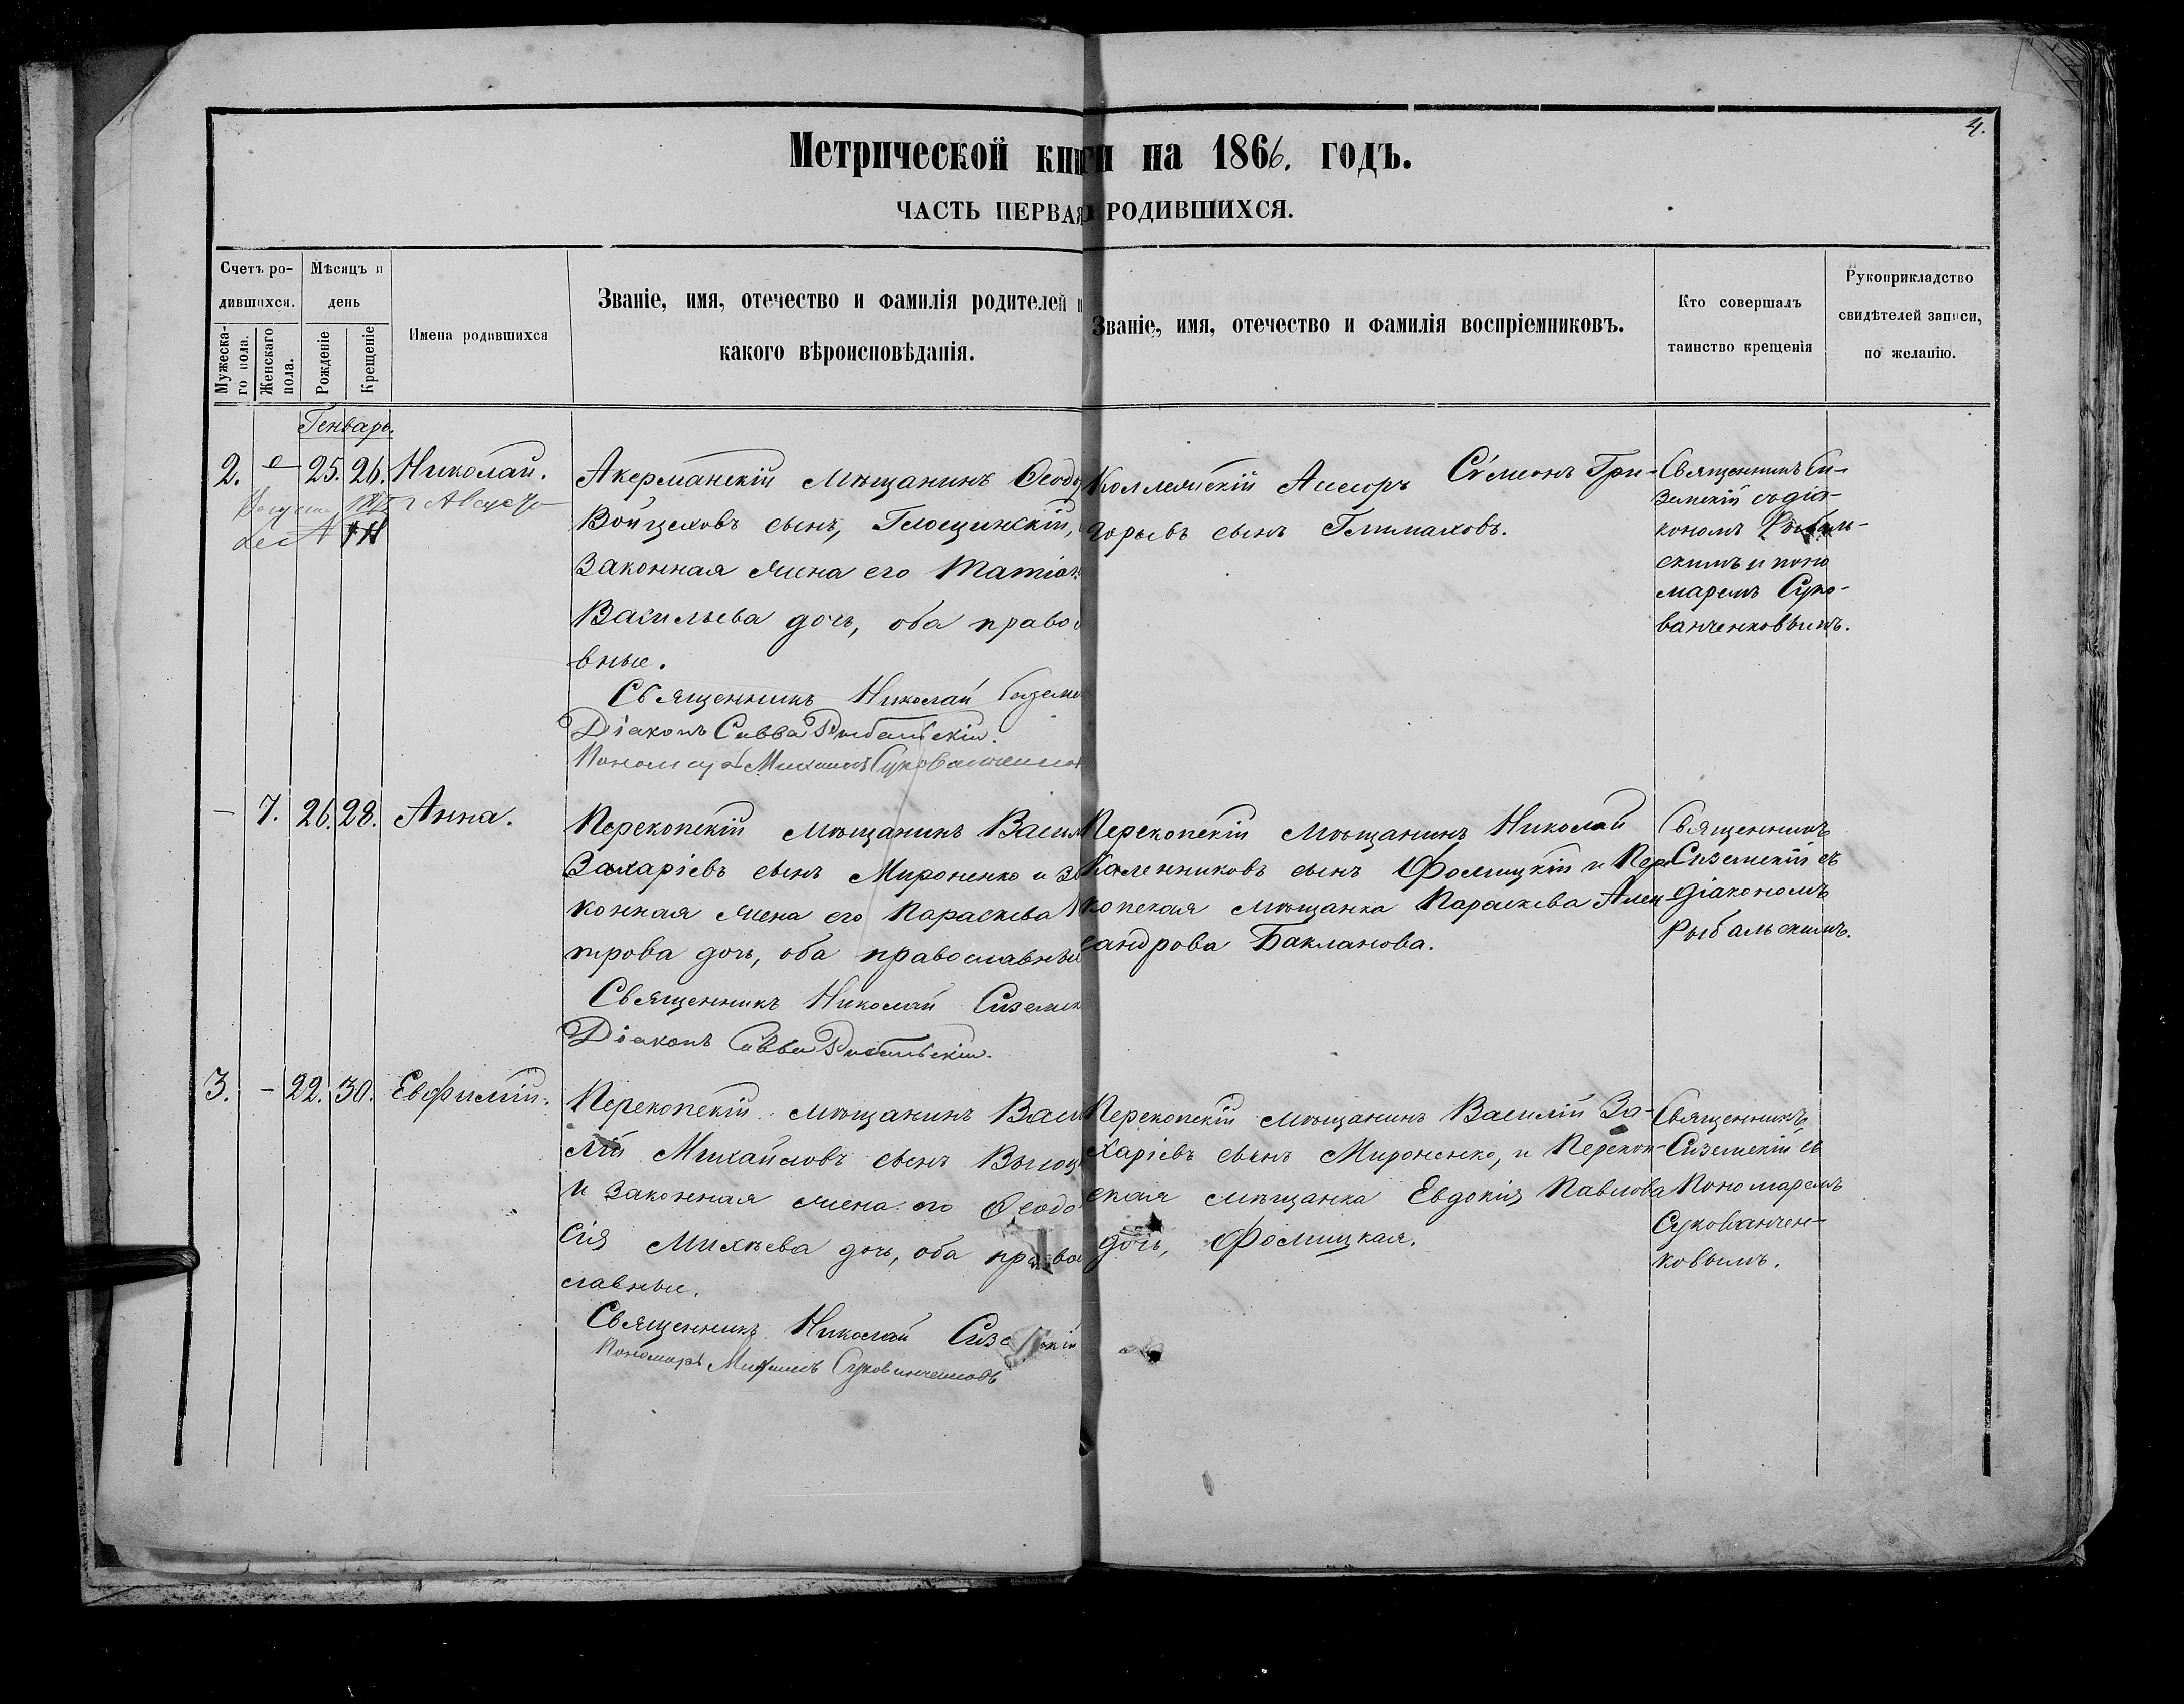 4.
Метрической книги на 1866. годъ.
ЧАСТЬ ПЕРВАЯ РОДИВШИХСЯ.
Счетъ ро-
дившихся.
Мужеска-
го пола.
Женскаго
пола.
Мѣсяцъ и
день
Рожденіе
Крещеніе
Имена родившихся
Званіе, имя, отечество и фамилія родителей и
какого вѣроисповѣданія.
Званіе, имя, отечество и фамилія воспріемниковъ.
Кто совершалъ
таинство крещенія
Рукоприкладство
свидѣтелей записи,
по желанію.
Генварь.
2. 25. 26. Николай.
Акерманскій мѣщанинъ Ѳеодо
Войцеховъ сынъ,
Законная жена его
Васильева дочь, оба право
вные.
Священникъ Николай
Діаконъ Савва Рыбальскій.
Пономарь Михаилъ
Коллежскій Ассесоръ Сѵмеонъ Гри-
горьевъ сынъ
Священникъ Си-
земскій съ діа-
кономъ Рыбаль-
скимъ и поно
маремъ Суко-
ванченковымъ.
— 7. 26. 28. Анна.
Перекопскій мѣщанинъ Васил
Захаріевъ сынъ Мироненко и за
конная жена его Параскева
трова дочь, оба православные
Священникъ Николай Сиземск
Діаконъ Савва Рыбальскій.
Перекопскій мѣщанинъ Николай
Каленниковъ сынъ Фомицкій и Пере
копская мѣщанка Параскева Алек
сандрова Бакланова.
Священникъ
Сиземскій съ
діакономъ
Рыбальскимъ.
3. — 22. 30. Евфимій.
Перекопскій мѣщанинъ Васи
лій Михайловъ сынъ
и законная жена его Ѳеодо
сія Михѣева дочь, оба право
славные.
Священникъ Николай Сиземскій
Пономарь Михаилъ Сукованченковъ
Перекопскій мѣщанинъ Василій За-
харіевъ сынъ Мироненко, и Перекоп-
ская мѣщанка Евдокія Павлова
дочь, Фомицкая.
Священникъ
Сиземскій съ
Пономаремъ
Сукованчен-
ковымъ.